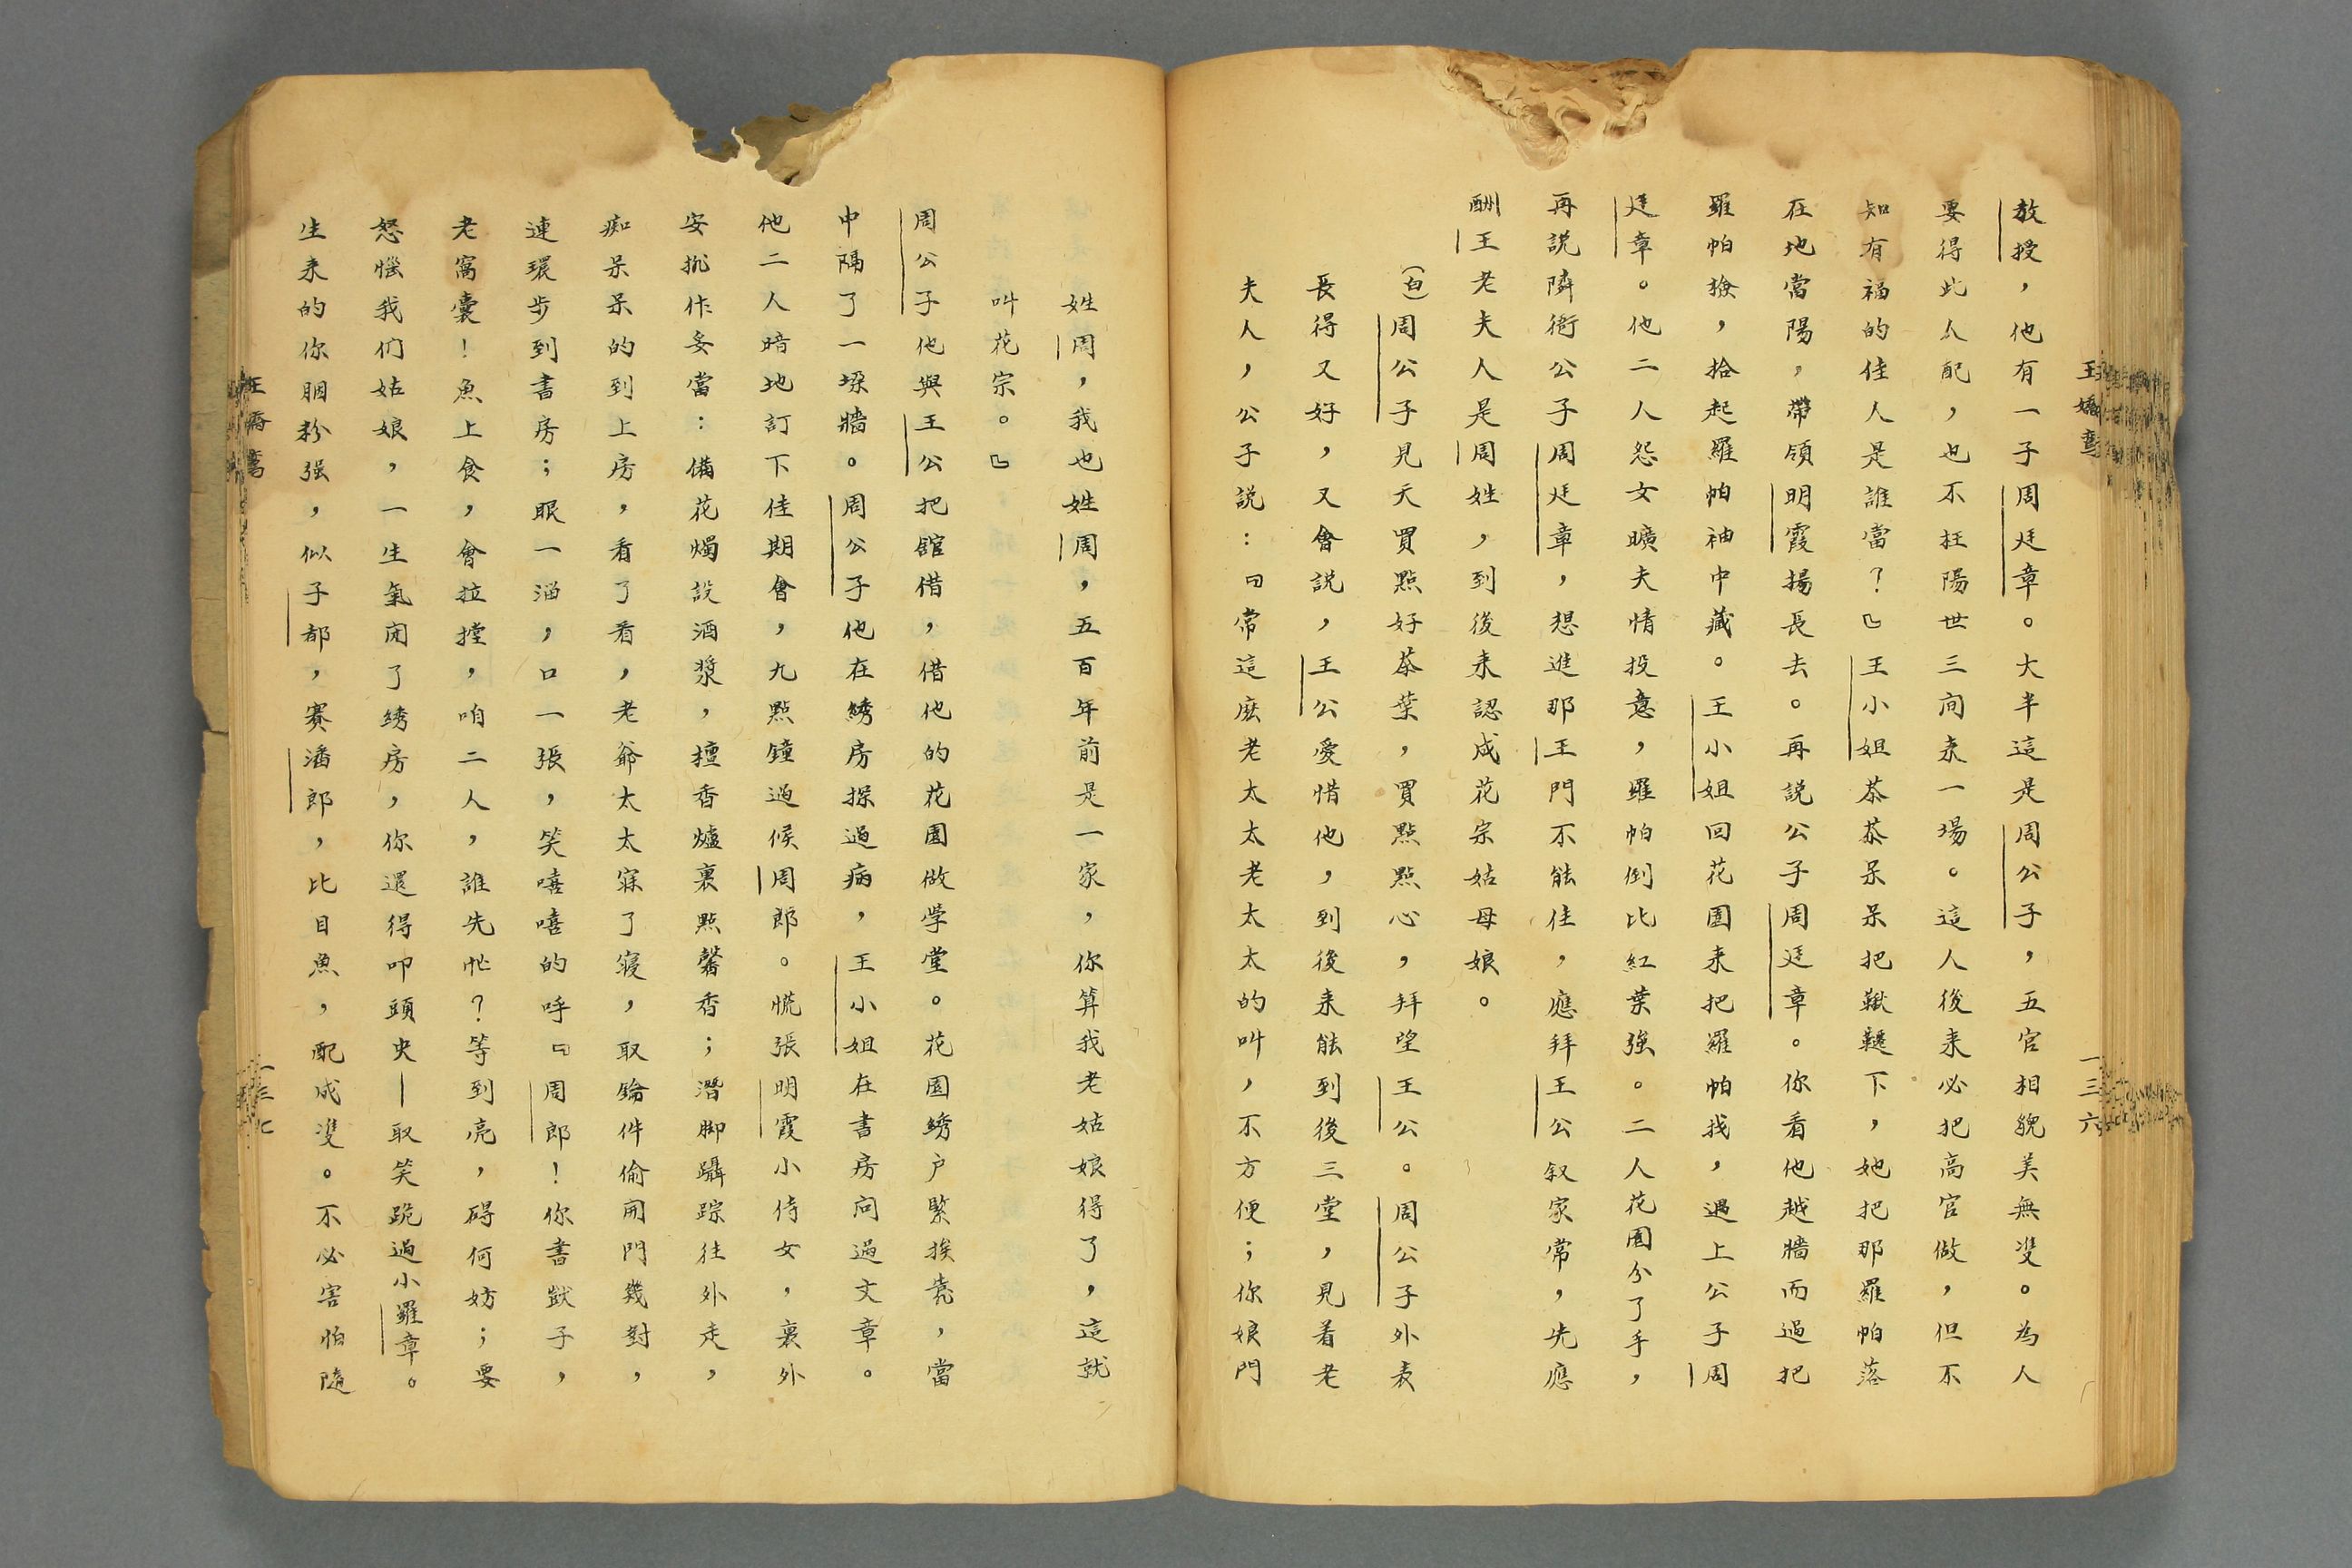 王嬌鸞
一三六
教授，他有一子周廷章。大半這是周公子，五官相貌美無双。為人
要得此人配，也不枉陽世三间来一場。這人後来必把高官做，但不
知有福的佳人是誰當？』王小姐恭恭呆呆把鞦韆下，她把那羅帕落
在地當陽，帶領明霞揚長去。再説公子周廷章。你看他越牆而過把
羅帕撿，拾起羅帕袖中藏。王小姐回花園来把羅帕找，遇上公子周
廷章。他二人怨女曠夫情投意，羅帕倒比紅葉強。二人花園分了手，
再説隣衙公子周廷章，想進那王門不能佳，應拜王公叙家常，先應
酬王老夫人是周姓，到後来認成花宗姑母娘。
（白）周公子見天買點好茶葉，買點點心，拜望王公。周公子外表
長得又好，又會説，王公愛惜他，到後来能到後三堂，見着老
夫人，公子説：『常這麽老太太老太太的叫，不方便；你娘門
姓周，我也姓周，五百年前是一家，你算我老姑娘得了，這就
叫花宗。』
周公子他與王公把舘借，借他的花園做学堂。花园綉户緊挨凴，當
中隔了一垛牆。周公子他在綉房探過病，王小姐在書房问過文章。
他二人暗地訂下佳期會，九點鐘過候周郎。慌張明霞小侍女，裏外
安排作妥當：備花燭設酒漿，檀香爐裏點馨香；潛脚躡踪往外走，
痴呆呆的到上房，看了看，老爺太太寐了寝，取鑰件偷開門幾對，
連環步到書房；眠一溜，口一張，笑嘻嘻的呼『周郎！你書獃子，
老窩囊！魚上食，會拉摚，咱二人，誰先忙？等到亮，碍何妨；要
怒惱我们姑娘，一生氣闭了绣房，你還得叩頭央—取笑跪過小羅章。
生来的你胭粉强，似子都，賽潘郎，比目魚，配成双。不必害怕隨
王嬌鸞
一三七